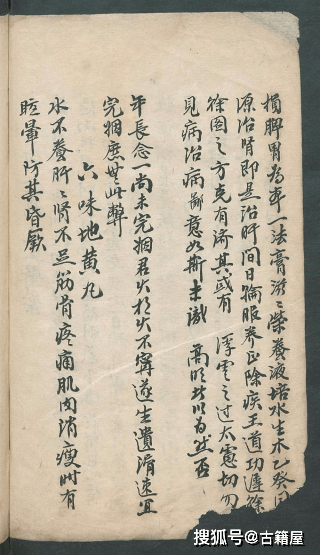 損脾胃為第一法膏滋滋榮養液培水生木乙癸同
源治腎即是治肝間日輪服養正除疾王道功遲徐
徐圖之方克有濟其或有 浮雲之过太虛切勿
見病治病鄙意如斯未識 高明以為然否
年長念一尚未完姻君火相火不寧遂生遺滑速宜
完姻庶毋此弊
六味地黃丸
水不養肝肝腎不足筋骨疼痛肌肉消瘦时有
眩暈防其昏厥
搜狐号@古籍屋